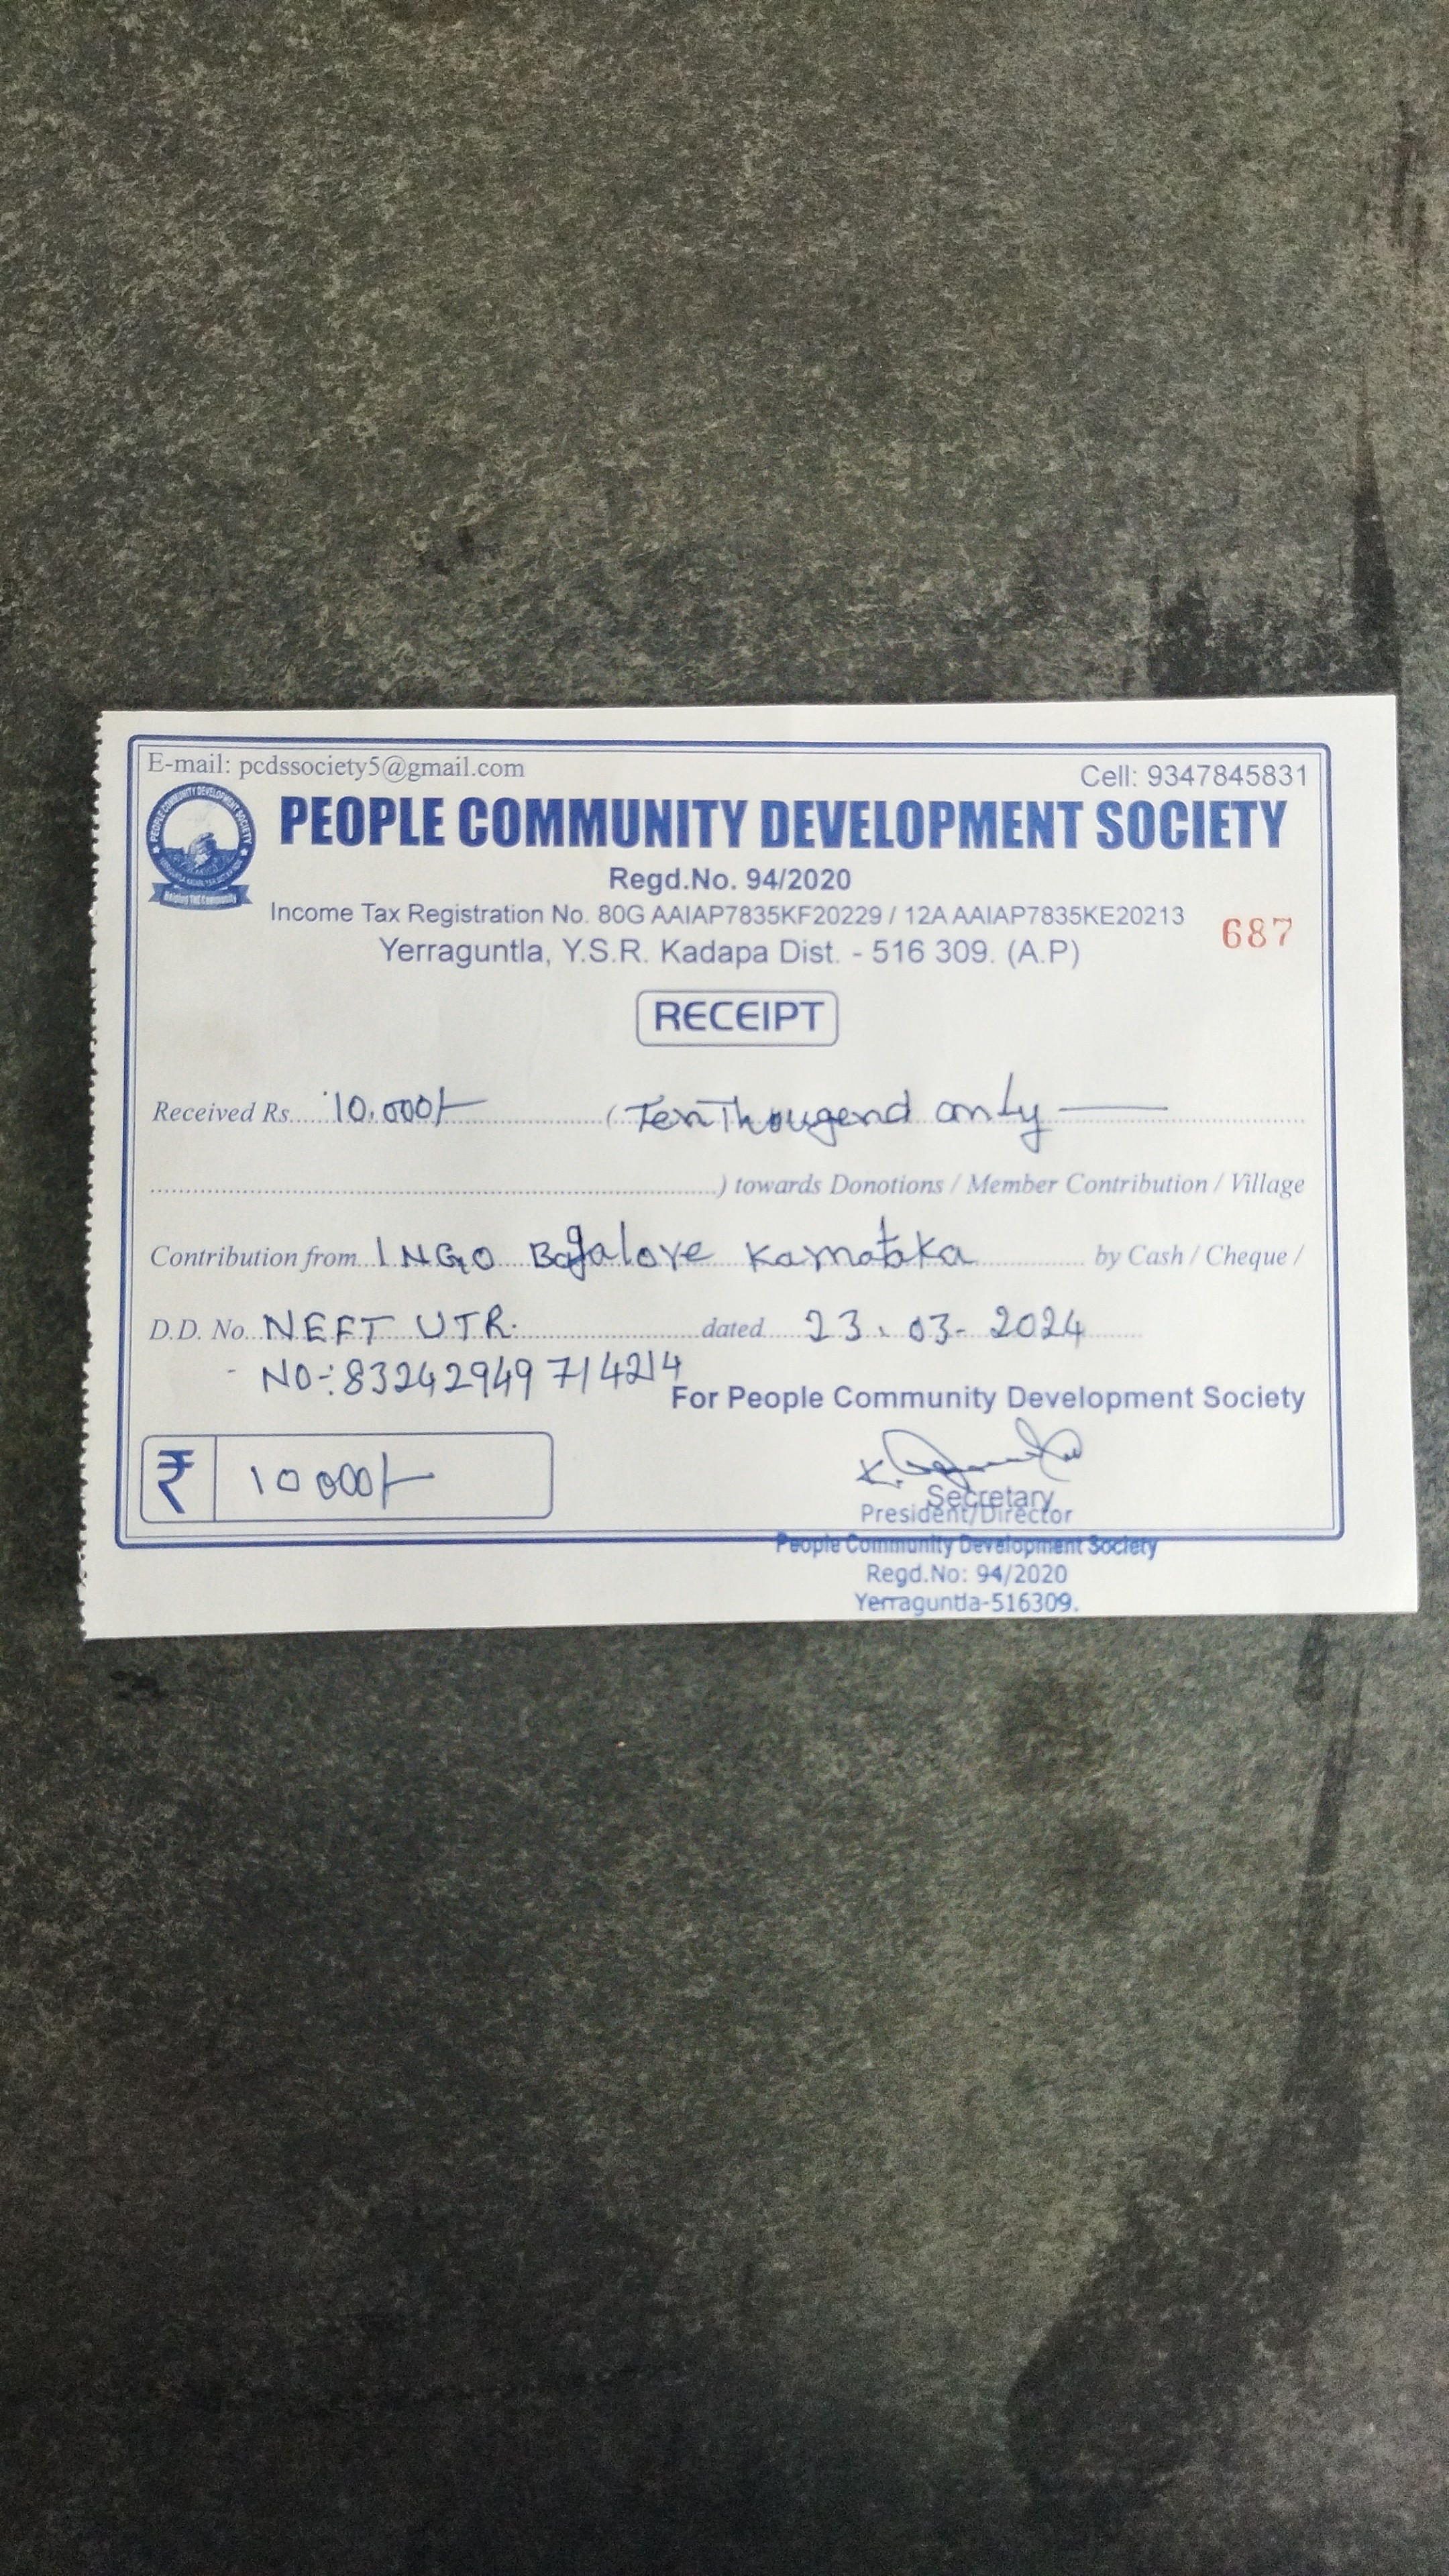 E-mail: pcdssociety5@gmail.com Cell: 9347845831
PEOPLE COMMUNITY DEVELOPMENT SOCIETY
Regd.No. 94/2020
Income Tax Registration No. 80G AAIAP7835KF20229 / 12A AAIAP7835KE20213
687
Yerraguntla, Y.S.R. Kadapa Dist. - 516 309. (A.P)
PEOPLE COMMUNITY DEVELOPMENT SOCIETY
Helping The Community
RECEIPT
Received Rs. 10,000/- (Ten Thougend only
) towards Donotions / Member Contribution / Village
Contribution from INGO Bagalore Karnataka by Cash / Cheque /
D.D. No. NEFT UTR. dated 23.03-2024
NO-:83242949714214
For People Community Development Society
₹ 10000/-
Secretary
President/Director
People Community Development Society
Regd.No: 94/2020
Yerraguntla-516309.